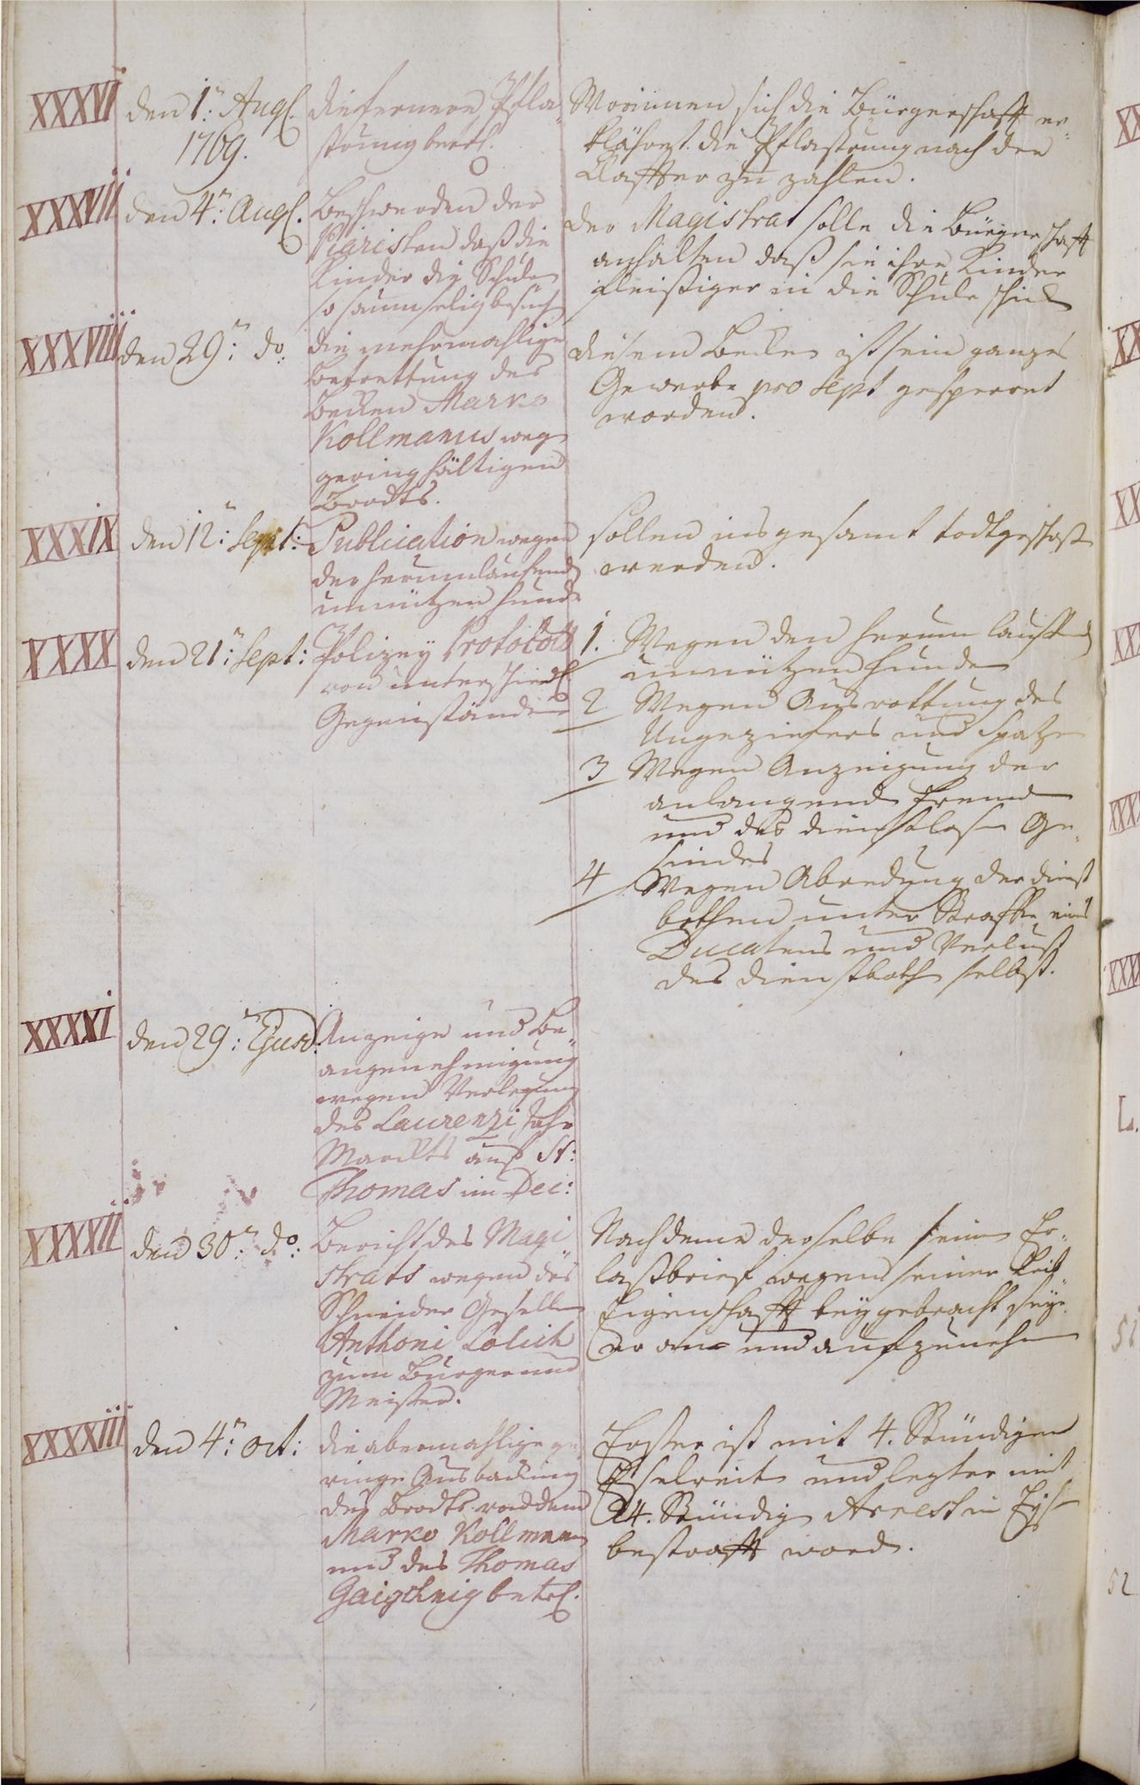 XXXVI
den 1ten: Augl.
1769.
die fernere Pfla-
sterung betrl.
Worinnen sich die Bürgerschafft er-
klähret die Pflasterung nach der
Klaffter zu zahlen.
XXXVII
den 4ten: Augl.
Beschwerden der
Piaristen daß die
Kinder die Schulen
so saumselig besuch
der Magistrat solle die Bürgerschafft
anhalten daß sie ihre Kinder
fleißiger in die Schule schicken
XXXVIII
den 29ten: do.
die mehrmahlige
betrettung des
Becken Marko
Kollmanus wegen
geringhältigen
Brodts.
diesem Becken ist sein ganzes
Gewerbe pro Sept gesperret
worden.
XXXIX
den 12ten: Sept:
Publication wegen
der herumlaufenden
unnützen hunde
sollen insgesamt todtgeschossen
werden.
XXXX
den 21ten: Sept:
Polizey Protocoll
von unterschiedl.
Gegenständen
1. Wegen den herum lauffenden
unnützen hunden
2 Wegen Ausrottung des
Ungeziefers und Spatzen
3 Wegen Anzeigung der
anlangenden Fremden
und des dienstlosen Ge-
sindes
4 Wegen Abredung der dienst
bothen unter Straffe eines
Ducatens und Verlust
des dienstboths selbst.
XXXXI
den 29ten: Ejusd.
Anzeige und Be-
angenehmigung
wegen Verlegung
des Laurenzi Jahr
Marckts auf St:
Thomas im Dec:
XXXXII
den 30ten: do:
Bericht des Magi
strats wegen des
Schneider Gesellen
Anthoni Lolich
zum Burger und
Meister.
Nachdeme derselbe seinen Er-
laßbrief wegen seiner Leib-
Eigenschafft beygebracht seye
er an- und aufzunehmen
XXXXIII
den 4ten: oct:
die abermahlige ge
ringe Ausbackung
des Brodts von dem
Marko Kollmann
und des Thomas
Gaigchnig betrl.
Erster ist mit 4. Stündigen
Eselreiten und letzter mit
24. Stündig Arrest in Eysen
bestrafft worden.